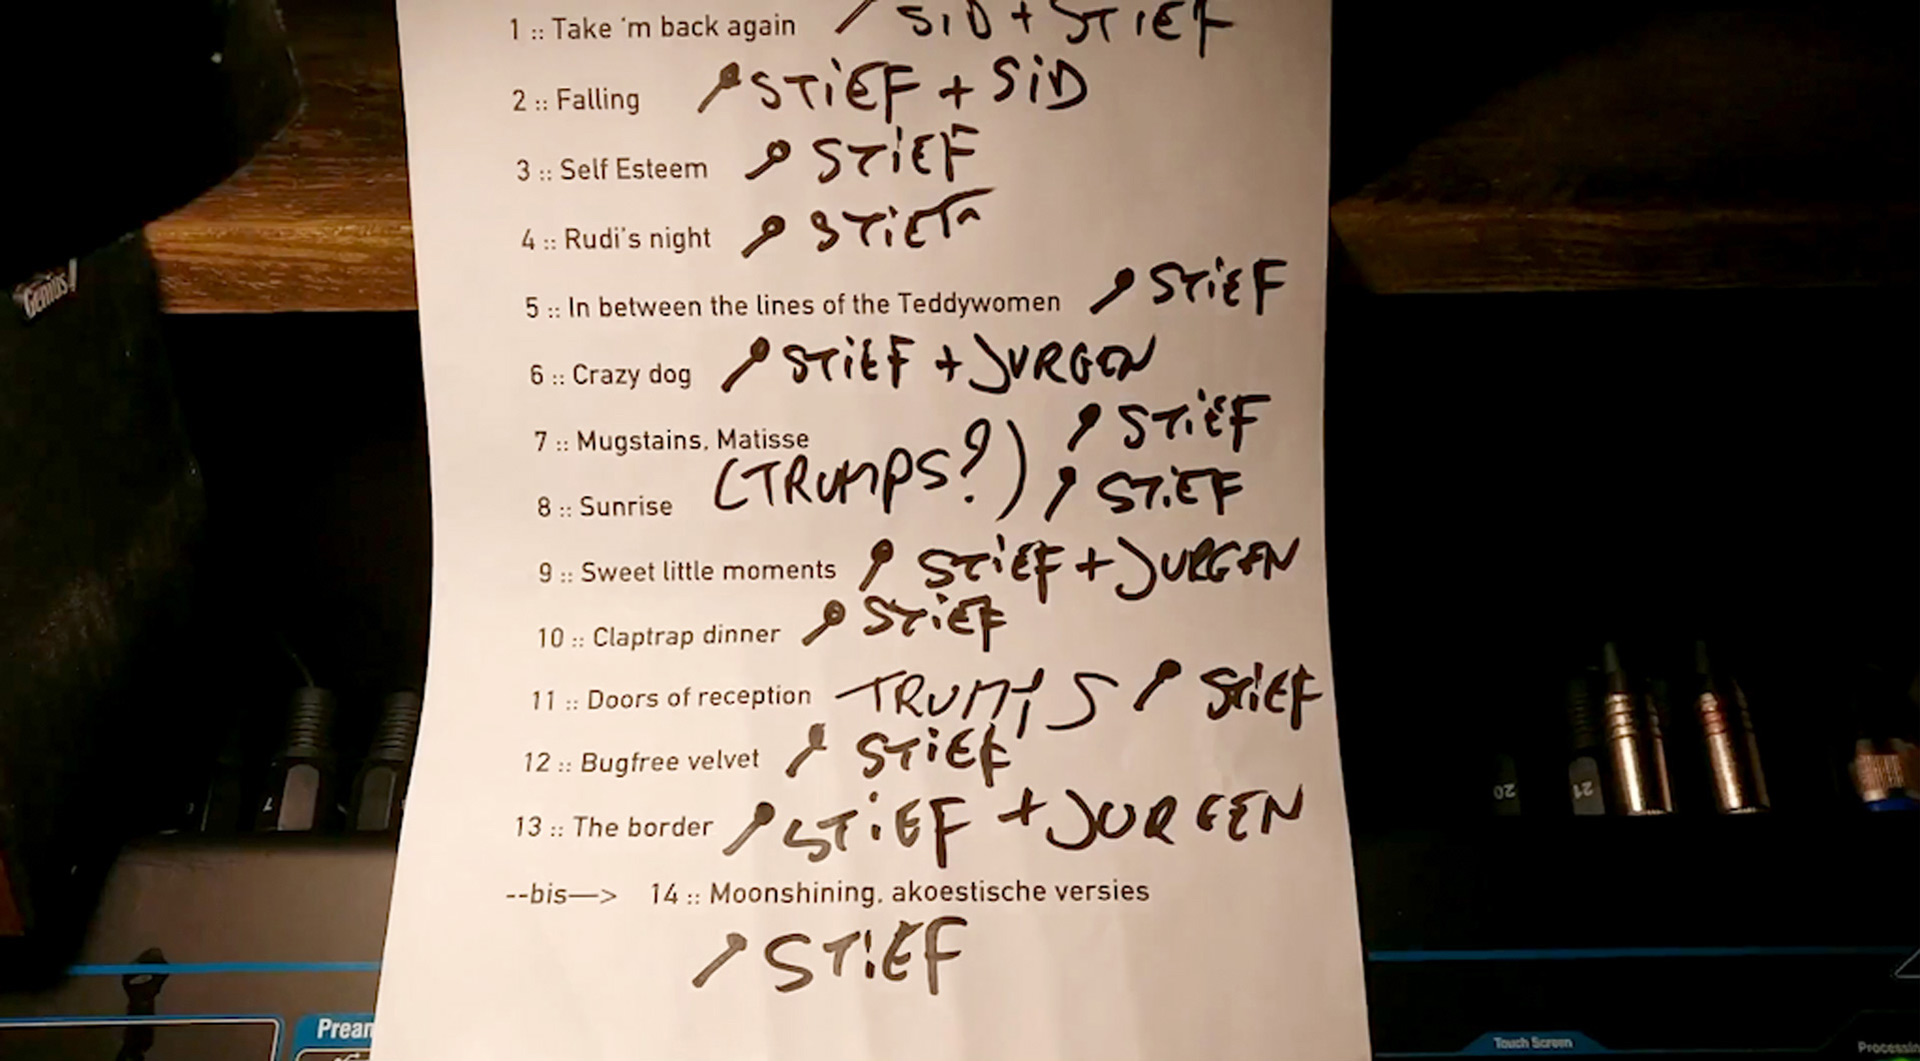 1 :: Take 'm back again SiD + STIEF
2 :: Falling STiEF + SiD
3 :: Self Esteem STiEF
4 :: Rudi's night STiEF
5 :: In between the lines of the Teddywomen STiEF
6 :: Crazy dog STiEF + JURGEN
7 :: Mugstains, Matisse STiEF
8 :: Sunrise (TRUMPS?) STiEF
9 :: Sweet little moments STiEF + JURGEN
10 :: Claptrap dinner STiEF
11 :: Doors of reception TRUMPS STiEF
12 :: Bugfree velvet STiEF
13 :: The border STiEF + JURGEN
--bis—> 14 :: Moonshining, akoestische versies
STiEF
Genius!
20
21
Touch Screen